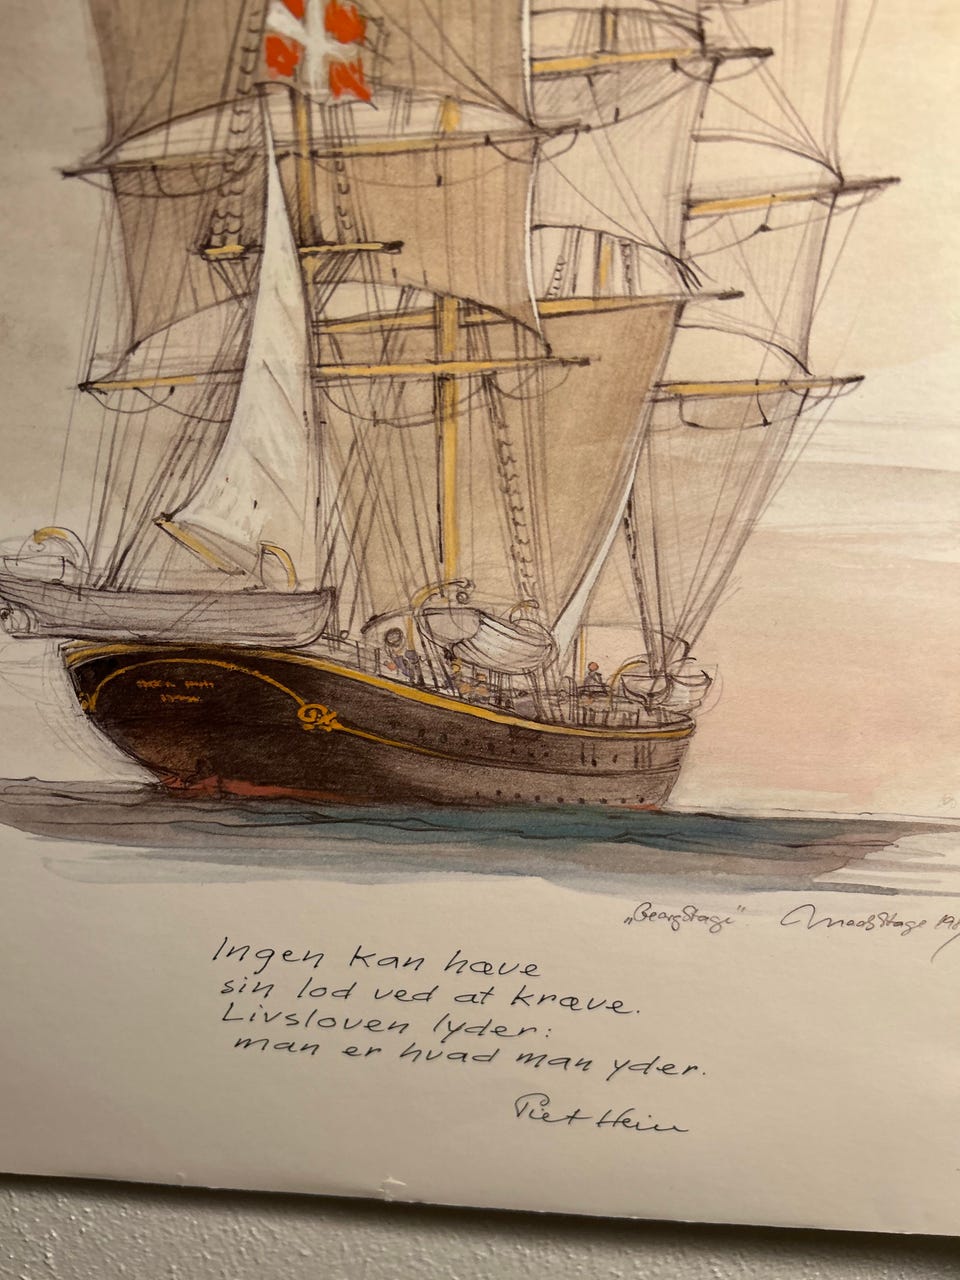 „Georg Stage" Mads Stage
Ingen kan hæve
sin lod ved at kræve.
Livsloven lyder:
man er hvad man yder.
Piet Hein